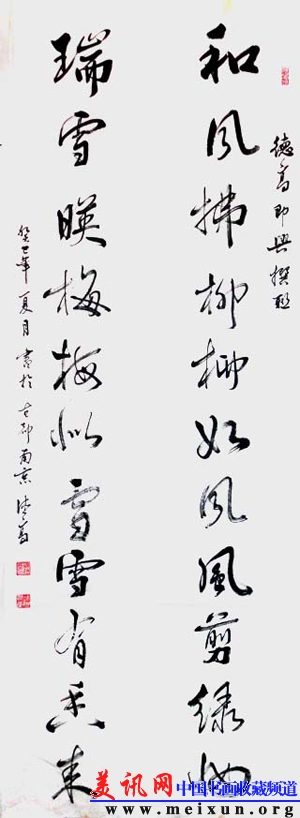 德高即興撰联
和风拂柳柳如风風剪绿
瑞雪暎梅梅似雪雪有香来
癸巳年夏月書於古都南京德高
美讯网
中国书画收藏频道
www.meixun.org